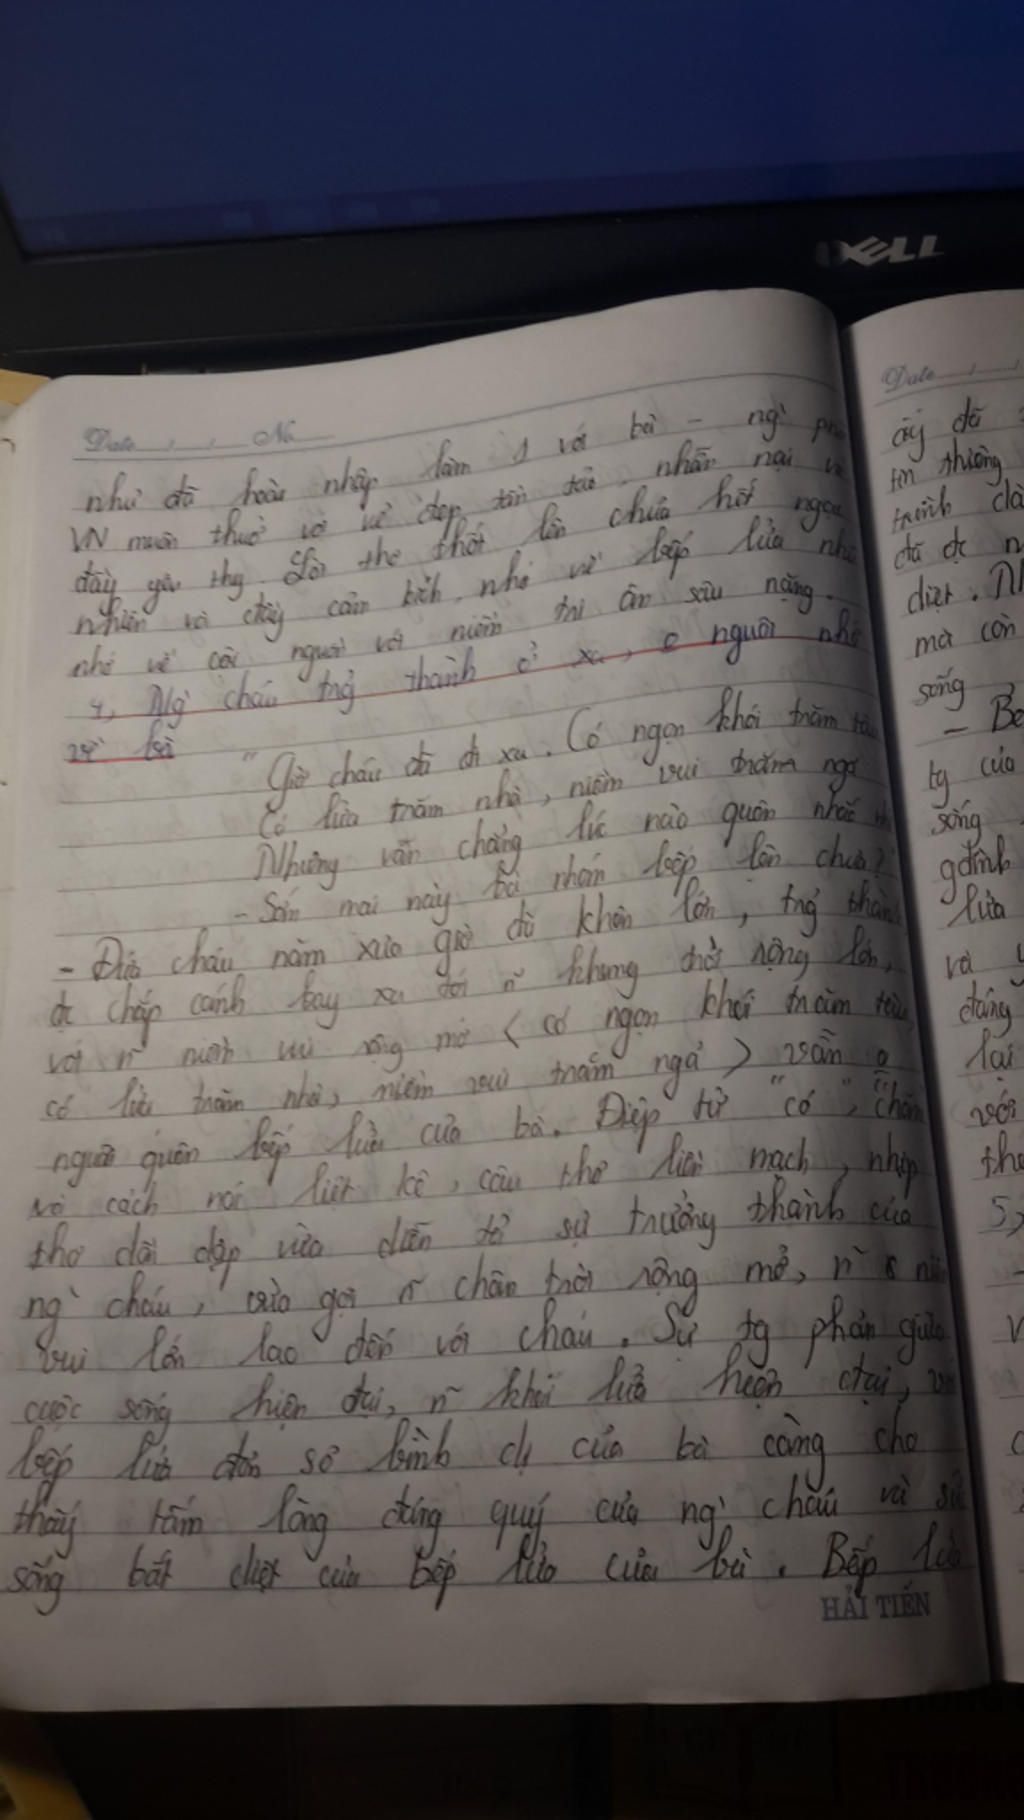 DELL
Date No
như đã hoà nhập làm 1 với bà - ng`
VN muôn thuở với vẻ đẹp tần tảo, nhẫn nại
đầy yêu thg. Lời thơ thốt lên chứa hết ngạc
nhiên và đầy cảm kích, nhớ về bếp lửa
nhớ về cội người với niềm tri ân sâu nặng.
4, Ng` cháu trg thành ở xa, o nguôi nhớ
về bà
"Giờ cháu đã đi xa. Có ngọn khói trăm tàu
Có lửa trăm nhà, niềm vui trăm ngả
Nhưng vẫn chẳng lúc nào quên nhắc
- Sớm mai này bà nhóm bếp lên chưa?
- Đứa cháu năm xưa giờ đã khôn lớn, trg thành
đc chắp cánh bay xa tới n~ khung trời rộng lớn,
với n~ niềm vui rộng mở < có ngọn khói trăm tàu
có lửa trăm nhà, niềm vui trăm ngả > vẫn o
nguôi quên bếp lửa của bà. Điệp từ "có",
và cách nói liệt kê, câu thơ liền mạch, nhịp
thơ dồn dập vừa diễn tả sự trưởng thành của
ng` cháu, vừa gợi n~ chân trời rộng mở, n~
vui lớn lao đến với cháu. Sự tg phản giữa
cuộc sống hiện đại, n~ khói lửa hiện đại,
bếp lửa đơn sơ bình dị của bà càng cho
thấy tấm lòng đáng quý của ng` cháu và sức
sống bất diệt của bếp lửa của bà. Bếp lửa
HẢI TIẾN
Date
ấy đã
tin thiêng
trình
đã đc
diệt.
mà còn
sống
- Be
tg của
sống
gđình
lửa
và
đáng
lại
với
5,